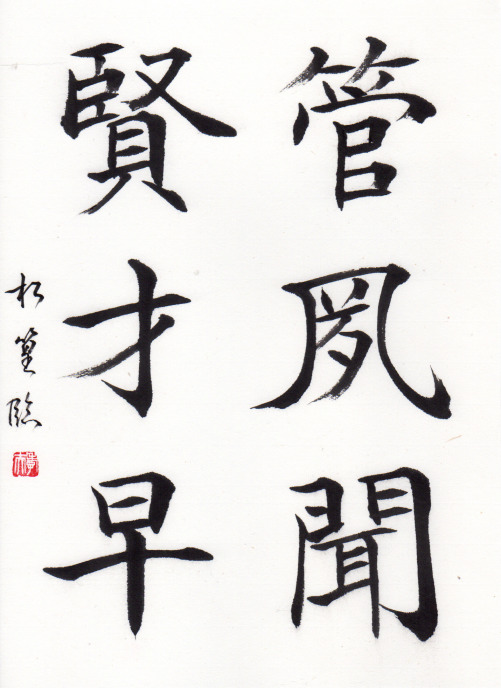 管夙聞
賢才早
松篁臨